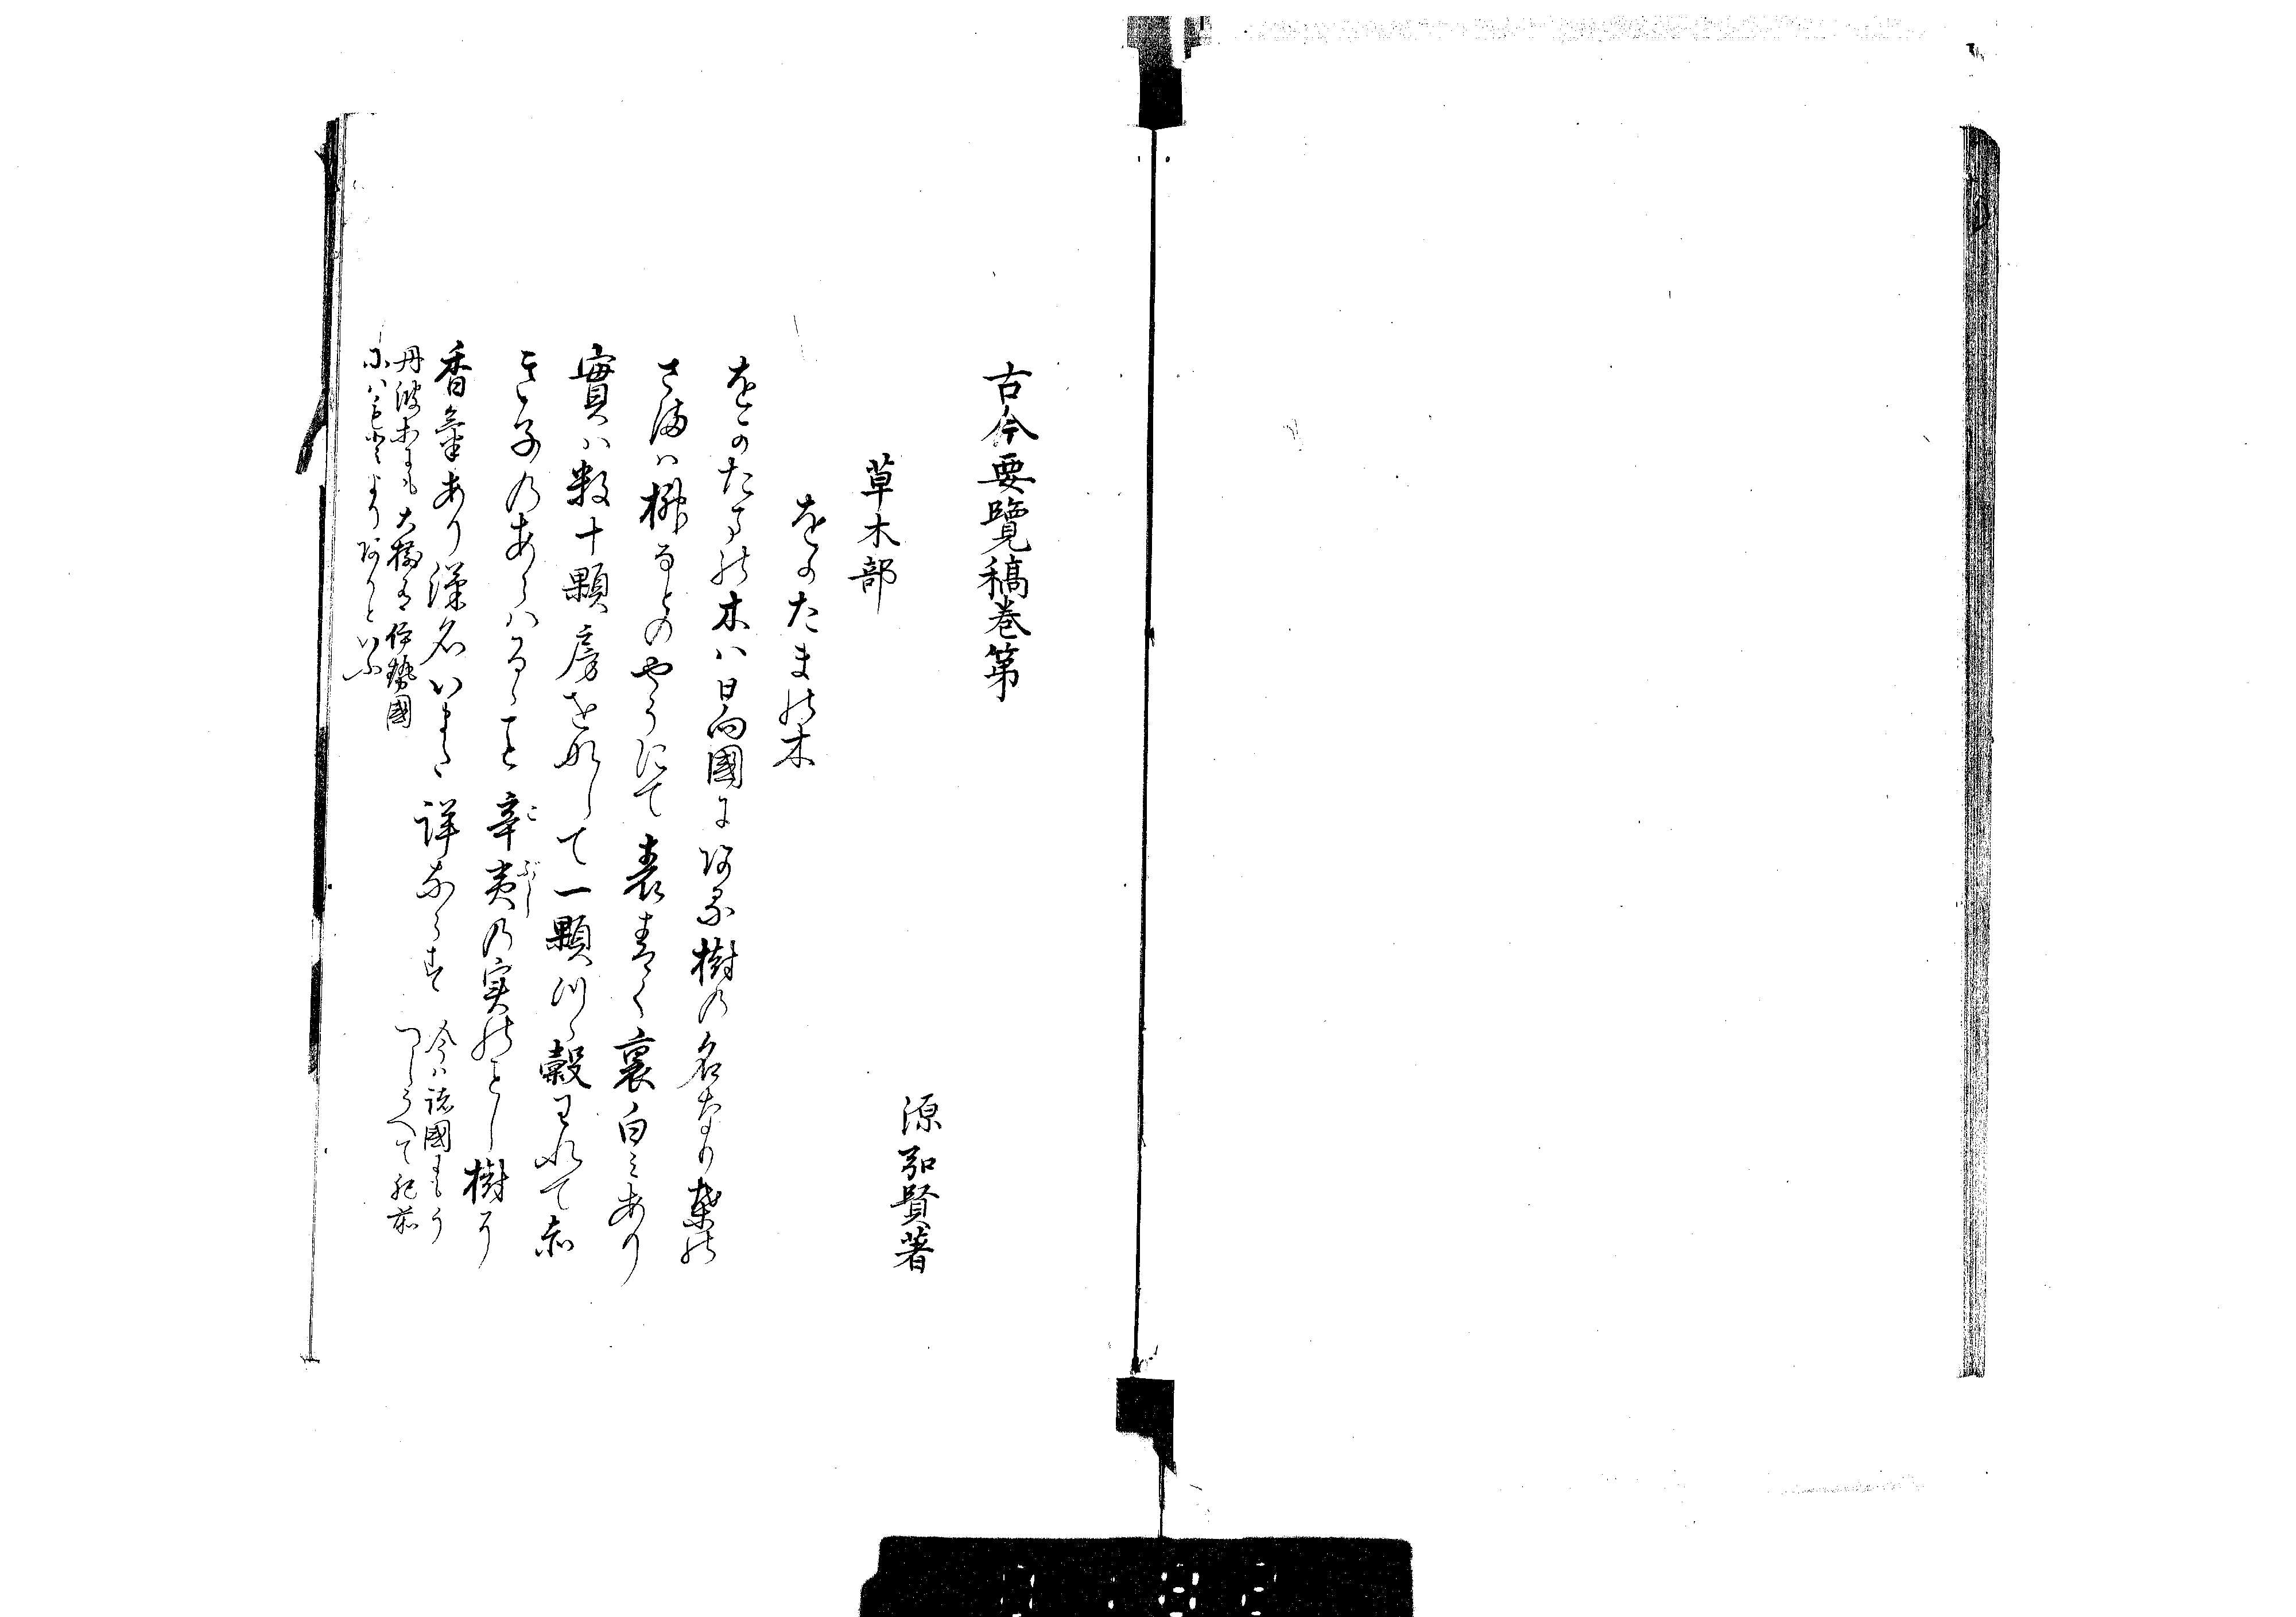 古今要覧稿巻第
源弘賢著
草木部
をかたまの木
をかたまの木ハ日向國にある樹の名なり葉の
さまハ榊なとのやうにて表青く裏白ミあり
實ハ数十顆房をなして一顆つゝ殻われて赤
き子のあらハるゝこと辛夷の実のことし樹に
こぶし
香氣あり漢名いまた詳ならす
今ハ諸國にもう
つしうへて紀前
丹波等にも大樹有伊勢國
にハもとよりありといふ